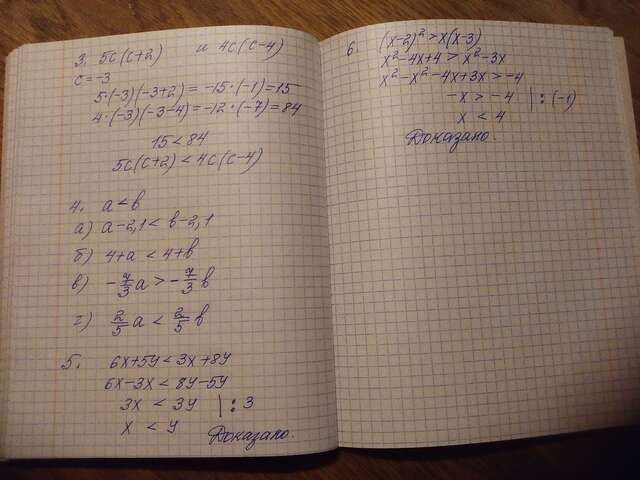 3. 5c(c+2) и 4c(c-4)
c=-3
5·(-3)(-3+2)= -15·(-1)=15
4·(-3)(-3-4)=-12·(-7)=84
15<84
5c(c+2)<4c(c-4)
4. a<b
а) a-2,1<b-2,1
б) 4+a<4+b
в) -7/3 a>-7/3 b
г) 2/5 a<2/5 b
5. 6x+5y<3x+8y
6x-3x<8y-5y
3x<3y |:3
x<y Доказано.
6. (x-2)²>x(x-3)
x²-4x+4>x²-3x
x²-x²-4x+3x>-4
-x>-4 |:(-1)
x<4
Доказано.